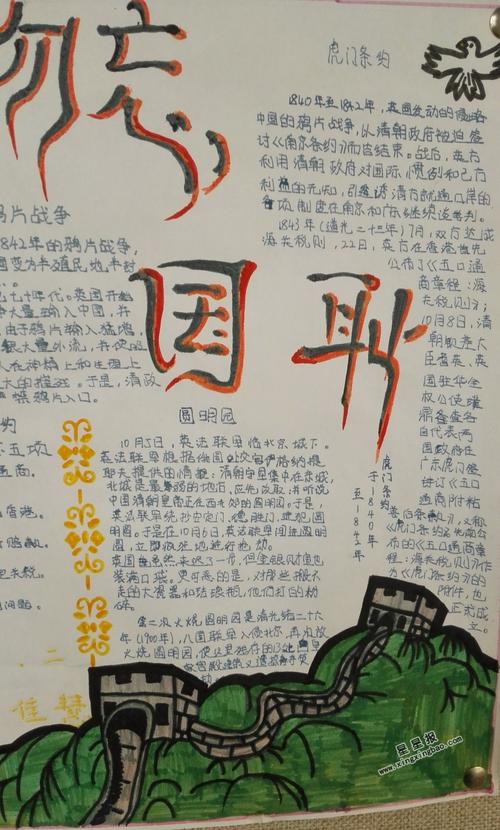 勿忘
国耻
虎门条约
1840年至1842年,英国发动的侵略
中国的鸦片战争,以清朝政府被迫签
讨《南京条约》而告结束。战后,英方
利用清朝政府对国际惯例和己方
利益的无知,引诱清方就通口岸的
各项制度在南京和广东继续谈判。
1843年(道光二十三年)7月,双方达成
海关税则,22日,英方在香港首先
公布了《五口通
商章程:海
关税则》;
10月8日,清
朝钦差大
臣耆英、英
国驻华全
权公使璞
鼎查签各
自代表两
国政府在
广东虎门签
订《五口
通商附粘
善后条款》,又称
《虎门条约》
布的《五口通商章
程:海关税则》作
为《虎门条约》的
附件,也
正式成
立。
虎门条约
于1840年
至1842年
鸦片战争
842年的鸦片战争,
国变为半殖民地半封
七十年代。英国开始
量输入中国,并
由于鸦片输入猛增
大量外流,并使吸
人在神精上和生理上
大的摧残。于是,清政
禁鸦片入口。
约
五项
香港。
税。
圆明园
10月5日,英法联军临北京城下。
英法联军根据俄国外交官伊格纳提
耶夫提供的情报:清朝守军集中在东城,
北城是最薄弱的地后,应先攻取;并听说
中国清朝皇帝正在西北郊的圆明园。于是,
英法联军绕抄安定门、德胜门,进犯圆
明园。于是在10月6日,英法联军闯进圆明
园,立即疯狂地进行抢劫
英国虽然来迟了一步,但金银财宝也
装满口袋。更可恶的是,对那些搬不
走的大瓷器和珐琅瓶,他们打的粉
碎。
第二次火烧圆明园是清光绪二十六
年(1900年),八国联军入侵北京,再次放
火烧圆明园,使这里残存的13处皇家
宫殿建筑又遭掠夺焚
劫
二
佳慧
星星报
www.xingxingbao.com